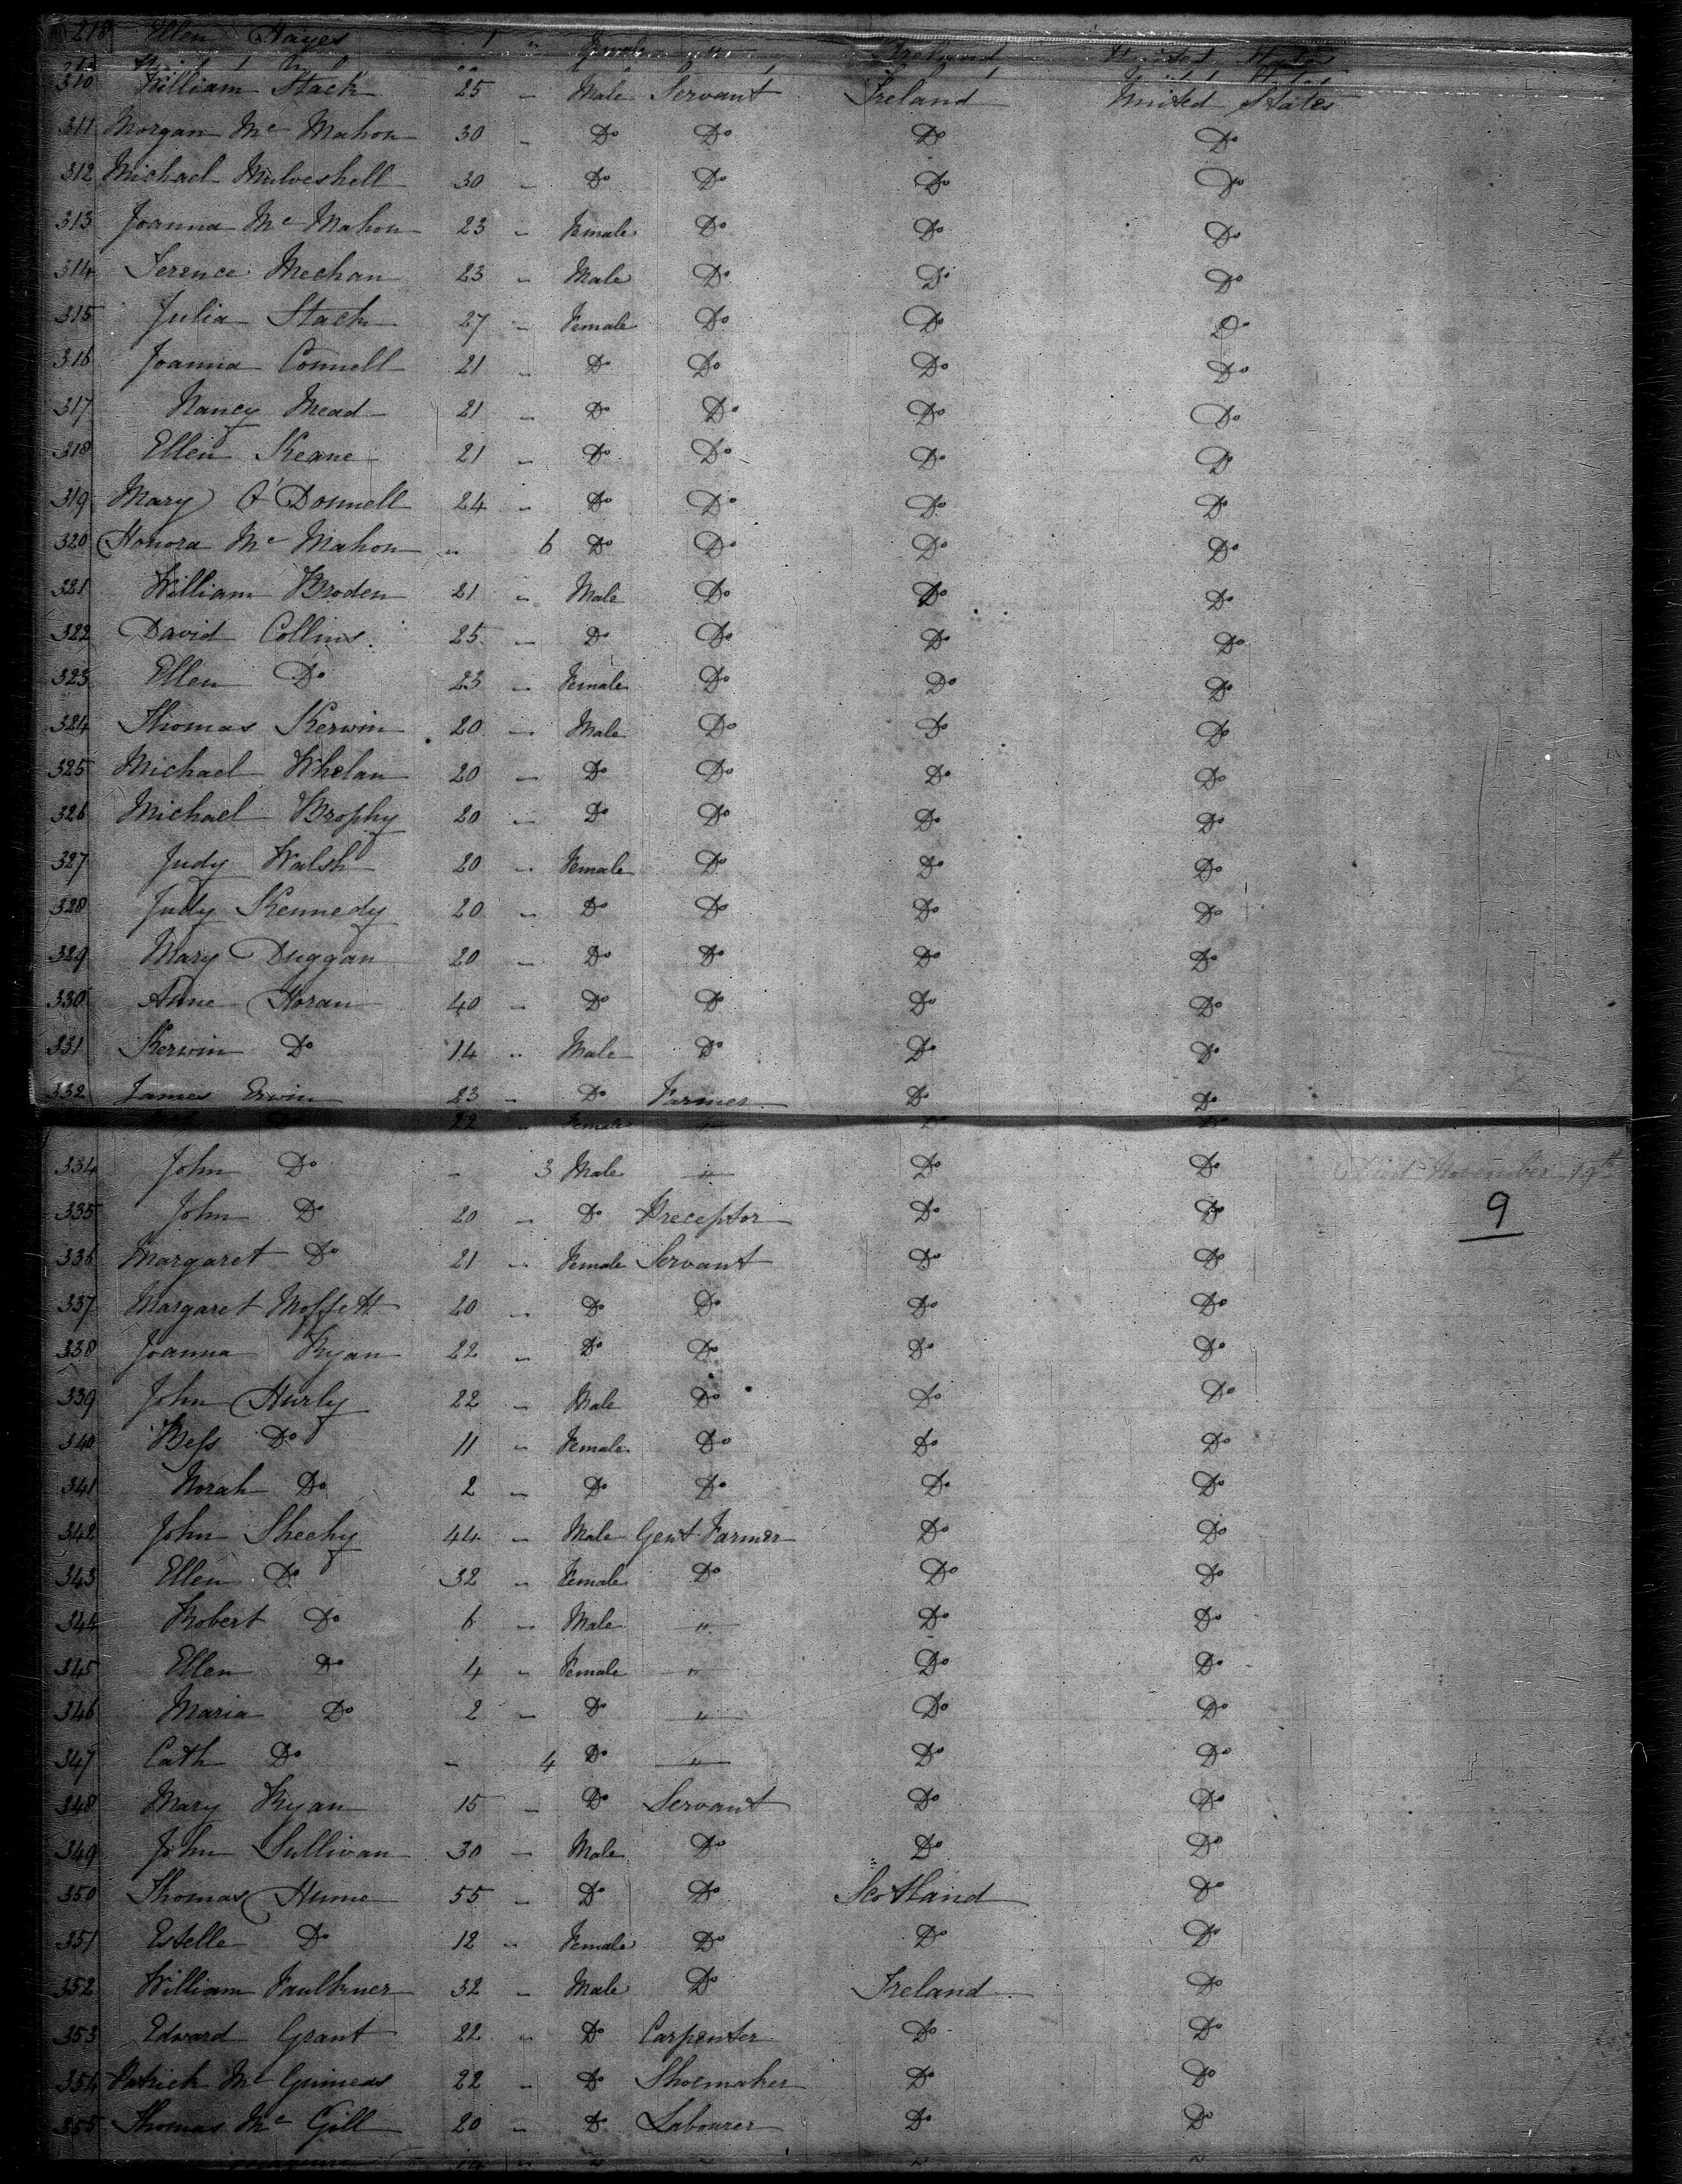 218 Ellen Hayes 1 " Female " Ireland United States
310 William Stack 25 " Male Servant Ireland United States
311 Morgan Mc Mahon 30 " Do Do Do Do
312 Michael 30 " Do Do Do Do
313 Joanna Mc Mahon 23 " Female Do Do Do
314 Terence Meehan 23 " Male Do Do Do
315 Julia Stack 27 " Female Do Do Do
316 Joanna Connell 21 " Do Do Do Do
317 Nancy Mead 21 " Do Do Do Do
318 Ellen Keane 21 " Do Do Do Do
319 Mary O'Donnell 24 " Do Do Do Do
320 Honora Mc Mahon " 6 Do Do Do Do
321 William Broden 21 " Male Do Do Do
322 David Collins 25 " Do Do Do Do
323 Ellen Do 23 " Female Do Do Do
324 Thomas Kerwin 20 " Male Do Do Do
325 Michael Whelan 20 " Do Do Do Do
326 Michael Brophy 20 " Do Do Do Do
327 Judy Walsh 20 " Female Do Do Do
328 Judy Kennedy 20 " Do Do Do Do
329 Mary Duggan 20 " Do Do Do Do
330 Anne Horan 40 " Do Do Do Do
331 Kerwin Do 14 " Male Do Do Do
332 James Erwin 23 " Do Farmer Do Do
22 " Female " Do Do
334 John Do " 3 Male " Do Do Died November 19th
335 John Do 20 " Do Preceptor Do Do 9
336 Margaret Do 21 " Female Servant Do Do
337 Margaret Moffett 20 " Do Do Do Do
338 Joanna Ryan 22 " Do Do Do Do
339 John Hurly 22 " Male Do Do Do
340 Bess Do 11 " Female Do Do Do
341 Norah Do 2 " Do Do Do Do
342 John Sheehy 44 " Male Gent Farmer Do Do
343 Ellen Do 32 " Female Do Do Do
344 Robert Do 6 " Male " Do Do
345 Ellen Do 4 " Female " Do Do
346 Maria Do 2 " Do " Do Do
347 Cath Do " 4 Do " Do Do
348 Mary Ryan 15 " Do Servant Do Do
349 John Sullivan 30 " Male Do Do Do
350 Thomas Hume 55 " Do Do Scotland Do
351 Estelle Do 12 " Female Do Do Do
352 William Faulkner 32 " Male Do Ireland Do
353 Edward Grant 22 " Do Carpenter Do Do
354 Patrick Mc Guineas 22 " Do Shoemaker Do Do
355 Thomas Mc Gill 20 " Do Labourer Do Do